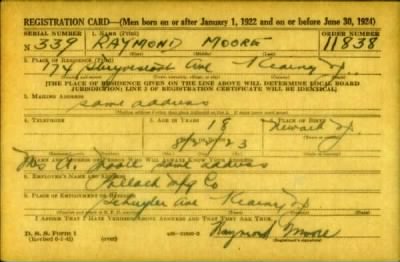 REGISTRATION CARD—(Men born on or after January 1, 1922 and on or before June 30, 1924)
SERIAL NUMBER 1. NAME (Print) ORDER NUMBER
N 339 RAYMOND MOORE 11838
2. PLACE OF RESIDENCE (Print)
174 Ave Kearny N.J.
[THE PLACE OF RESIDENCE GIVEN ON THE LINE ABOVE WILL DETERMINE LOCAL BOARD
JURISDICTION; LINE 2 OF REGISTRATION CERTIFICATE WILL BE IDENTICAL]
3. MAILING ADDRESS
same address
4. TELEPHONE 5. AGE IN YEARS 6. PLACE OF BIRTH
18 Newark N.J.
23
7. NAME AND ADDRESS OF PERSON WHO WILL ALWAYS KNOW YOUR ADDRESS
Mrs. Moore same address
8. EMPLOYER'S NAME AND ADDRESS
Pollack Mfg Co
9. PLACE OF EMPLOYMENT OR BUSINESS
Schuyler Ave Kearny N.J.
I AFFIRM THAT I HAVE VERIFIED ABOVE ANSWERS AND THAT THEY ARE TRUE.
D. S. S. Form 1 Raymond Moore
(Revised 6-1-42) (over) (Registrant's signature)